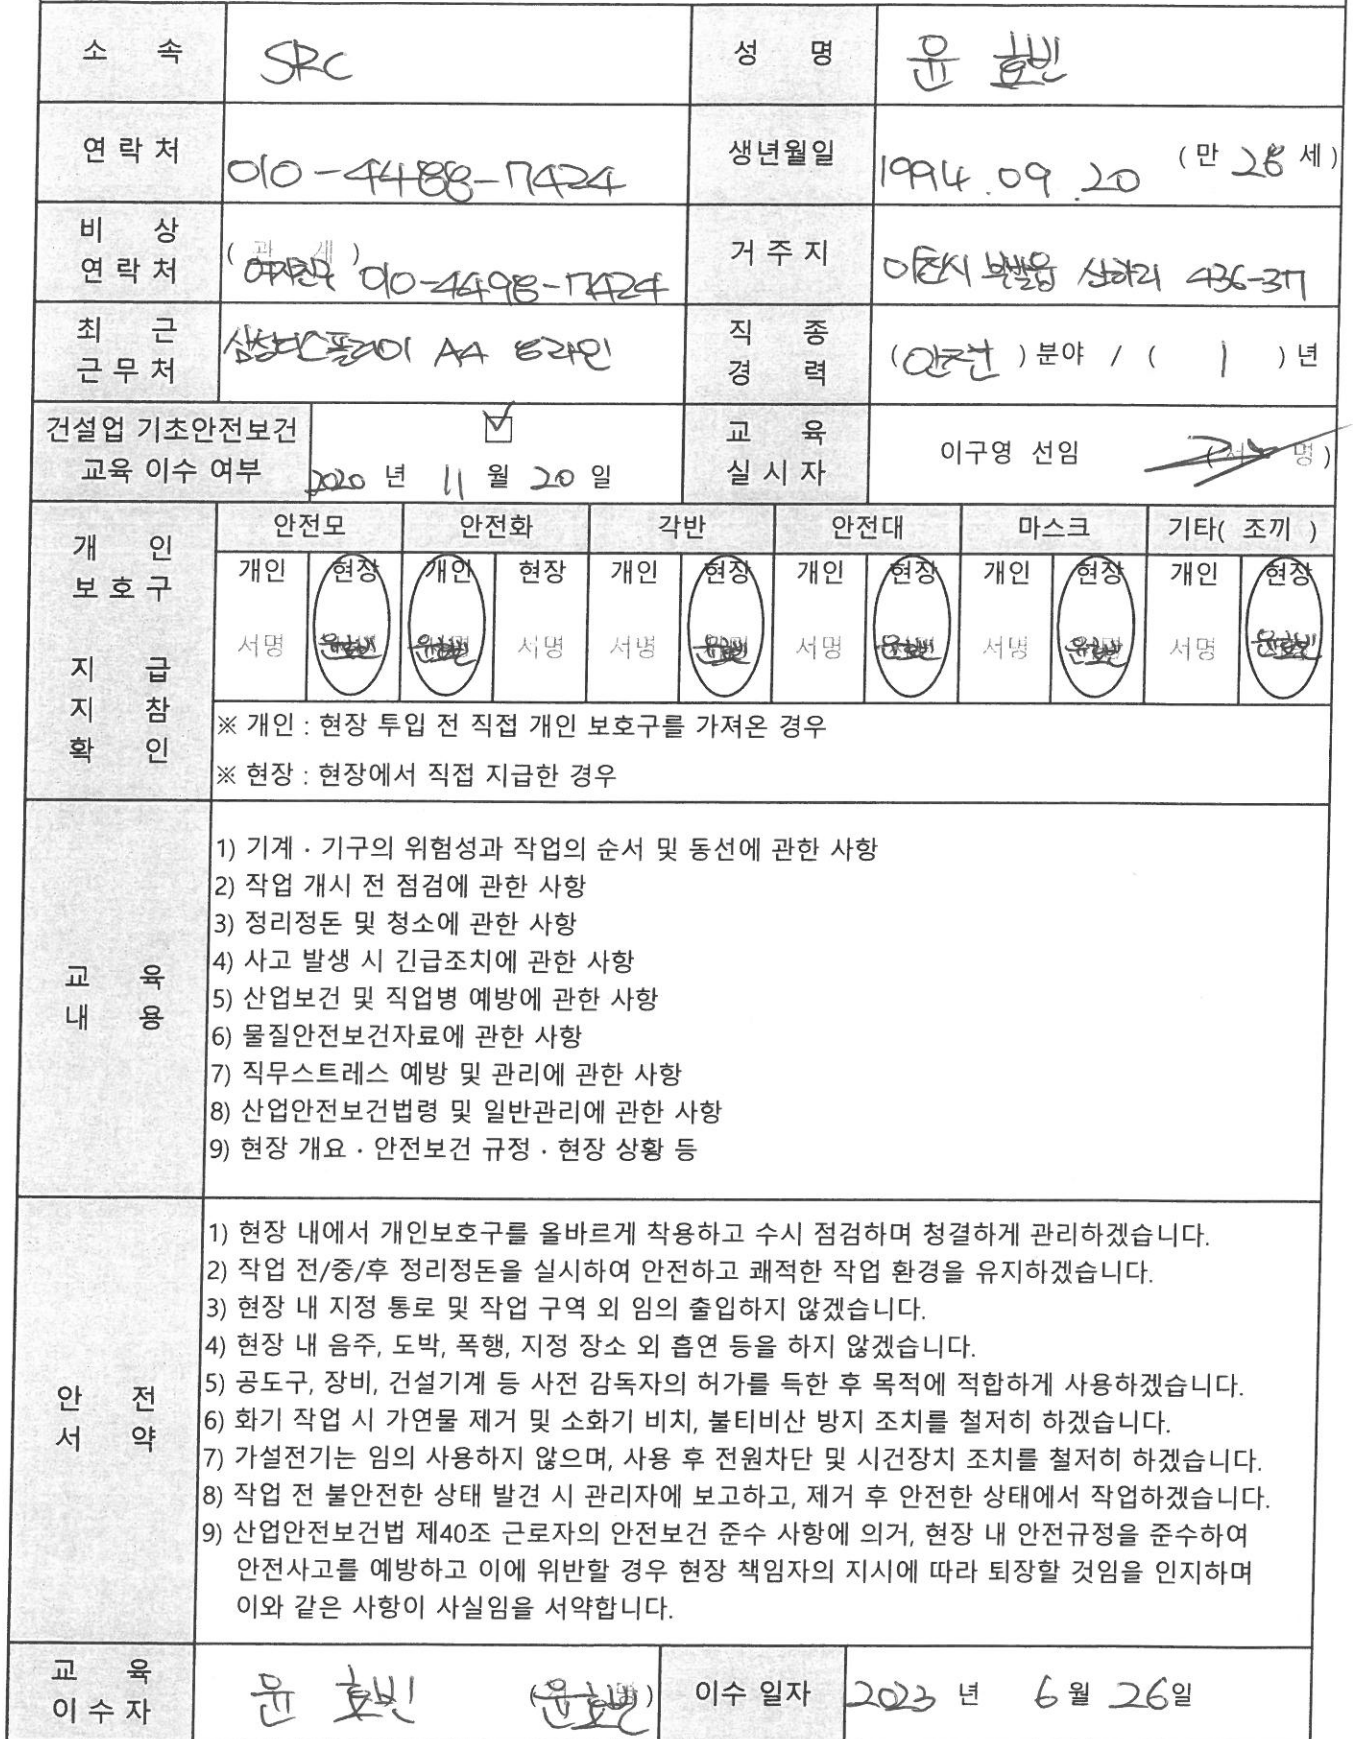 소 속 SRC 성 명 윤 효빈
연 락 처 010-4488-7424 생년월일 1994.09.20 (만 28 세)
비 상 연 락 처 (관 계) 여자친구 010-4498-7424 거 주 지 이천시 부발읍 신하리 436-37
최 근 근 무 처 삼성디스플레이 A4 직 종 경 력 (안전) 분야 / ( 1 ) 년
건설업 기초안전보건 교육 이수 여부 2020 년 11 월 20 일 교 육 실 시 자 이구영 선임 (서 명)
개 인 보 호 구 지 급 지 참 확 인
안전모 안전화 각반 안전대 마스크 기타( 조끼 )
개인 현장 개인 현장 개인 현장 개인 현장 개인 현장 개인 현장
서명 윤효빈 윤효빈 서명 서명 윤효빈 서명 윤효빈 서명 윤효빈 서명 윤효빈
※ 개인 : 현장 투입 전 직접 개인 보호구를 가져온 경우
※ 현장 : 현장에서 직접 지급한 경우
교 육 내 용
1) 기계 · 기구의 위험성과 작업의 순서 및 동선에 관한 사항
2) 작업 개시 전 점검에 관한 사항
3) 정리정돈 및 청소에 관한 사항
4) 사고 발생 시 긴급조치에 관한 사항
5) 산업보건 및 직업병 예방에 관한 사항
6) 물질안전보건자료에 관한 사항
7) 직무스트레스 예방 및 관리에 관한 사항
8) 산업안전보건법령 및 일반관리에 관한 사항
9) 현장 개요 · 안전보건 규정 · 현장 상황 등
안 전 서 약
1) 현장 내에서 개인보호구를 올바르게 착용하고 수시 점검하며 청결하게 관리하겠습니다.
2) 작업 전/중/후 정리정돈을 실시하여 안전하고 쾌적한 작업 환경을 유지하겠습니다.
3) 현장 내 지정 통로 및 작업 구역 외 임의 출입하지 않겠습니다.
4) 현장 내 음주, 도박, 폭행, 지정 장소 외 흡연 등을 하지 않겠습니다.
5) 공도구, 장비, 건설기계 등 사전 감독자의 허가를 득한 후 목적에 적합하게 사용하겠습니다.
6) 화기 작업 시 가연물 제거 및 소화기 비치, 불티비산 방지 조치를 철저히 하겠습니다.
7) 가설전기는 임의 사용하지 않으며, 사용 후 전원차단 및 시건장치 조치를 철저히 하겠습니다.
8) 작업 전 불안전한 상태 발견 시 관리자에 보고하고, 제거 후 안전한 상태에서 작업하겠습니다.
9) 산업안전보건법 제40조 근로자의 안전보건 준수 사항에 의거, 현장 내 안전규정을 준수하여
안전사고를 예방하고 이에 위반할 경우 현장 책임자의 지시에 따라 퇴장할 것임을 인지하며
이와 같은 사항이 사실임을 서약합니다.
교 육 이 수 자 윤 효빈 (윤효빈) 이수 일자 2023 년 6 월 26일